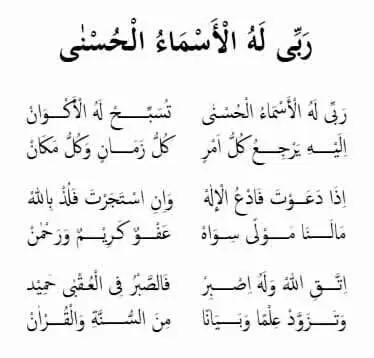 رَبِّى لَهُ الْأَسْمَاءُ الْحُسْنٰى
رَبِّى لَهُ الْأَسْمَاءُ الْحُسْنَى تُسَبِّحُ لَهُ الْأَكْوَانْ
اِلَيْهِ يَرْجِعُ كُلُّ اَمْرٍ كُلُّ زَمَانٍ وَكُلُّ مَكَانْ
اِذَا دَعَوْتَ فَادْعُ الْإِلٰهْ وَاِنِ اسْتَجَرْتَ فَلُذْ بِاللهْ
مَالَنَا مَوْلًى سِوَاهْ عَفْوٌ كَرِيْمٌ وَرَحْمٰنْ
اِتَّقِ اللهْ وَلَهُ اِصْبِرْ فَالصَّبْرُ فِى الْعُقْبٰى حَمِيْد
وَتَزَوَّدْ عِلْمًا وَبَيَانًا مِنَ السُّنَّةِ وَالْقُرْاٰنْ